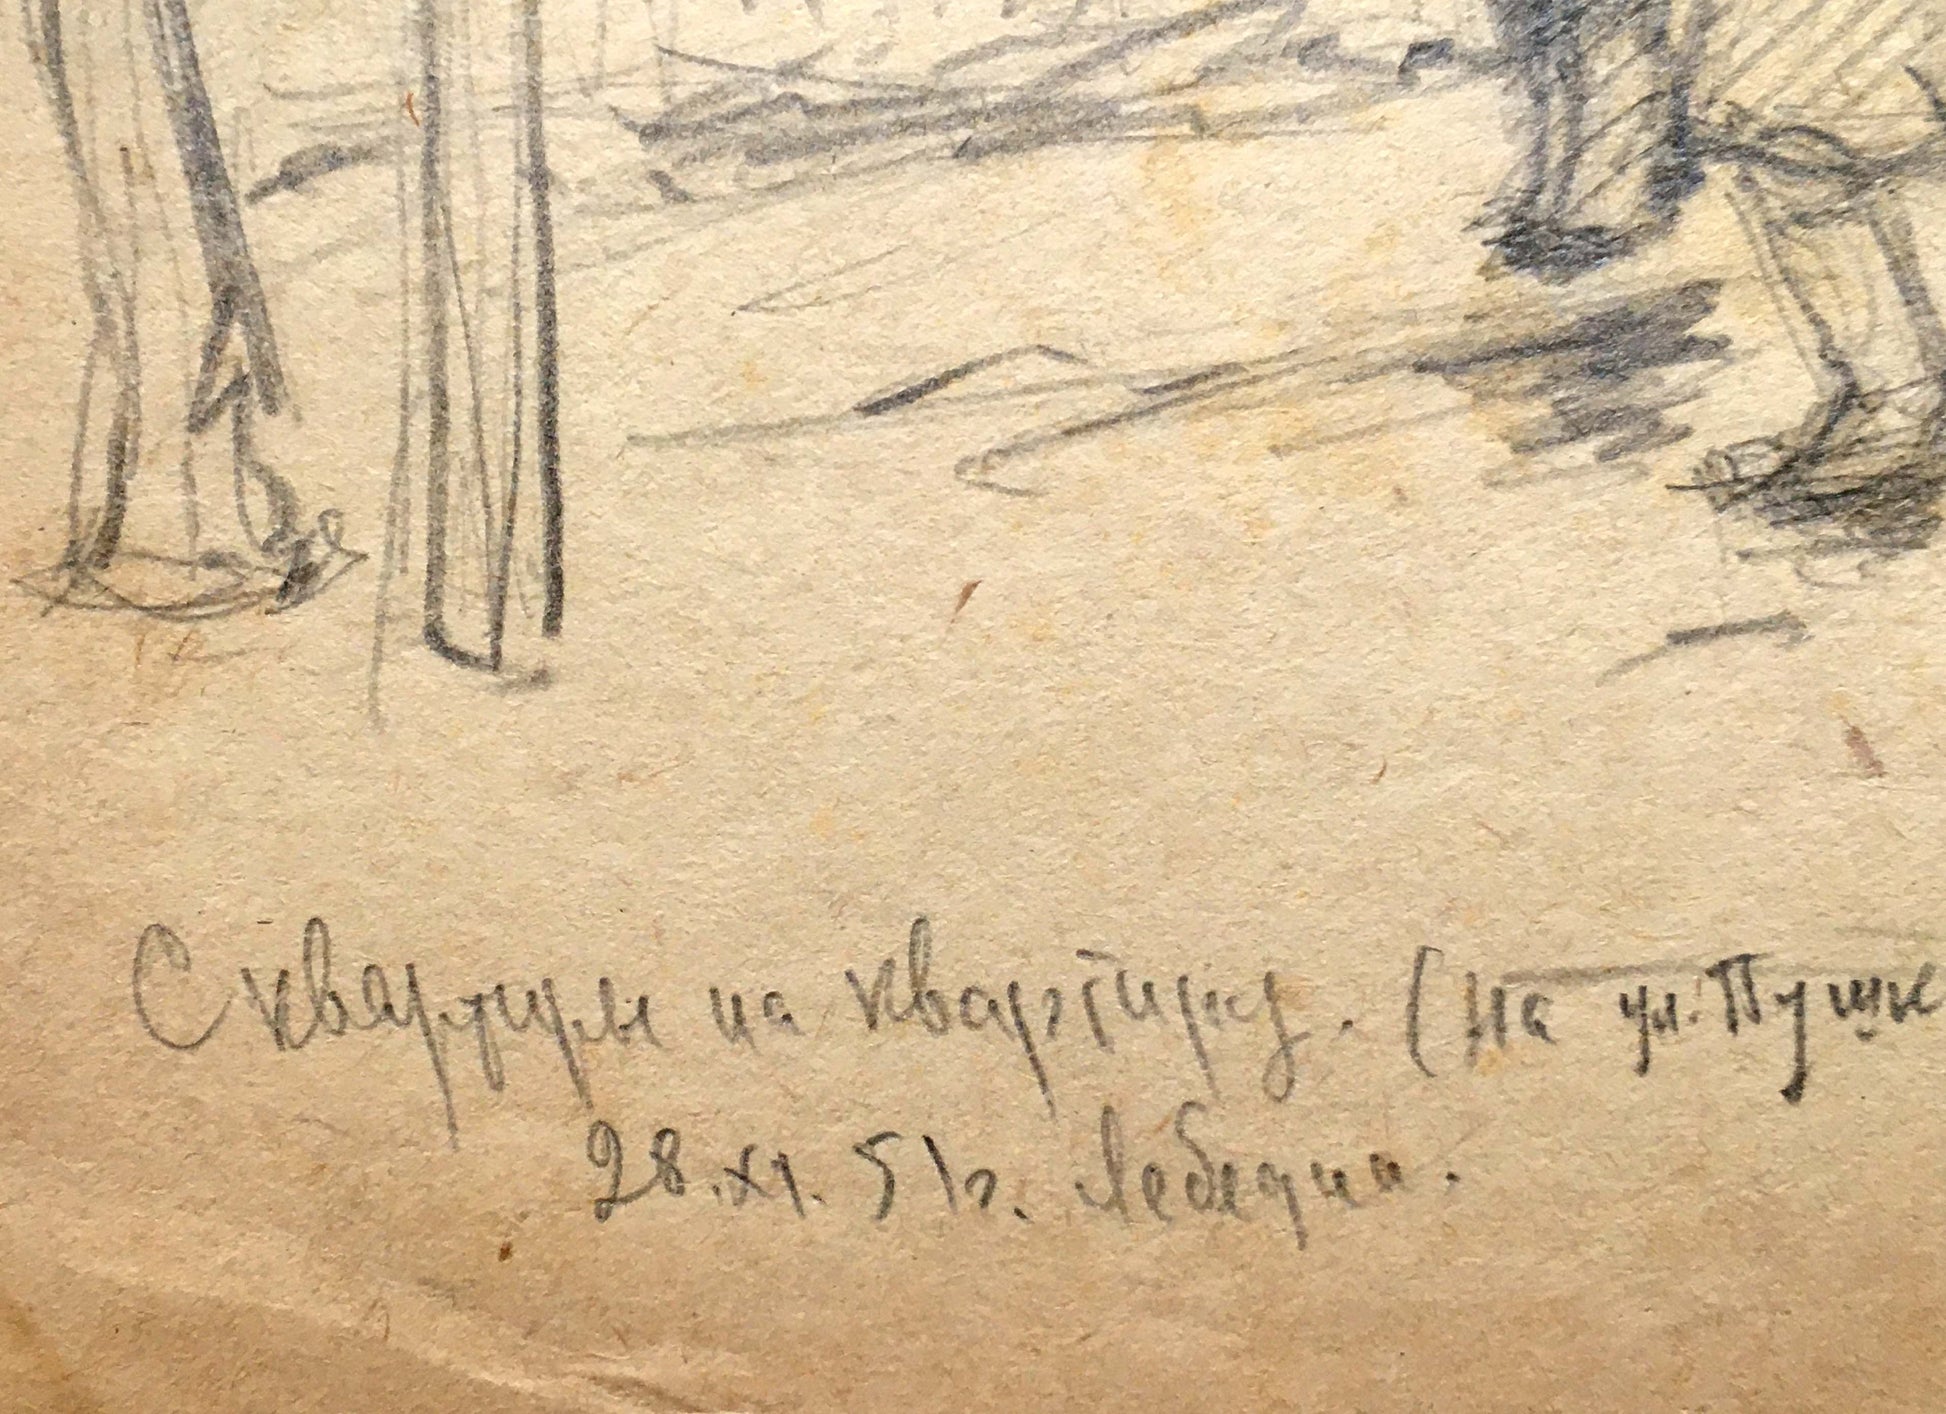 С квартиры на квартиру. (на ул. Пушк
28.XI.51г. Лебедин.